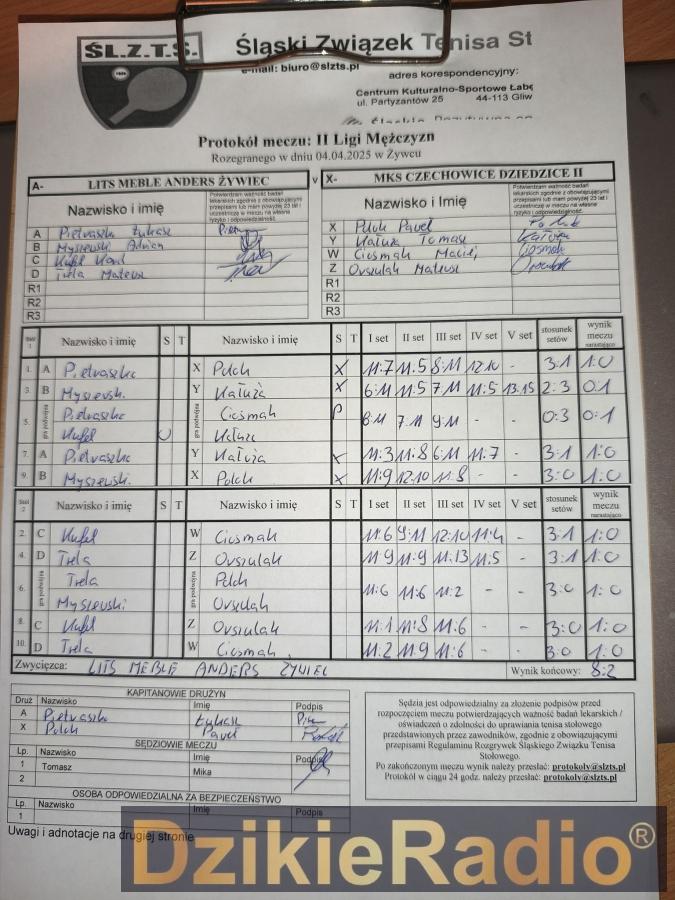 ŚL.Z.T.S.
Śląski Związek Tenisa St
e-mail: biuro@slzts.pl
adres korespondencyjny:
Centrum Kulturalno-Sportowe Łabę
ul. Partyzantów 25 44-113 Gliw
Protokół meczu: II Ligi Mężczyzn
Rozegranego w dniu 04.04.2025 w Żywcu
A- LITS MEBLE ANDERS ŻYWIEC v X- MKS CZECHOWICE DZIEDZICE II
Nazwisko i imię Nazwisko i Imię
A Pietraszko Łukasz X Polok Paweł
B Myszewski Adrian Y Kałuża Tomasz
C Kufel Karol W Ciosmak Maciej
D Trela Mateusz Z Owszulak Mateusz
R1 R1
R2 R2
R3 R3
Nazwisko i imię S T Nazwisko i imię S T I set II set III set IV set V set stosunek setów wynik meczu narastająco
1. A Pietraszko X Polok X 11:7 11:5 8:11 12:10 - 3:1 1:0
3. B Myszewski Y Kałuża X 6:11 11:5 7:11 11:5 13:15 2:3 0:1
5. gra podwójna Pietraszko Ciosmak 8:11 7:11 9:11 0:3 0:1
Kufel Kałuża
7. A Pietraszko Y Kałuża 11:3 11:8 6:11 11:7 - 3:1 1:0
9. B Myszewski X Polok X 11:9 12:10 11:8 - - 3:0 1:0
Nazwisko i imię S T Nazwisko i imię S T I set II set III set IV set V set stosunek setów wynik meczu narastająco
2. C Kufel W Ciosmak 11:6 9:11 12:10 11:4 - 3:1 1:0
4. D Trela Z Owszulak 11:9 11:9 11:13 11:5 - 3:1 1:0
6. gra podwójna Trela Polok 11:6 11:6 11:2 - - 3:0 1:0
Myszewski Owszulak
8. C Kufel Z Owszulak 11:1 11:8 11:6 3:0 1:0
10. D Trela W Ciosmak 11:2 11:9 11:6 - - 3:0 1:0
Zwycięzca: LITS MEBLE ANDERS ŻYWIEC Wynik końcowy: 8:2
KAPITANOWIE DRUŻYN
Druż Nazwisko Imię Podpis
A Pietraszko Łukasz
X Polok Paweł
SĘDZIOWIE MECZU
Lp. Nazwisko Imię Podpis
1 Tomasz Mika
2
OSOBA ODPOWIEDZIALNA ZA BEZPIECZEŃSTWO
Lp. Nazwisko Imię Podpis
1
Sędzia jest odpowiedzialny za złożenie podpisów przed
rozpoczęciem meczu potwierdzających ważność badań lekarskich /
oświadczeń o zdolności do uprawiania tenisa stołowego
przedstawionych przez zawodników, zgodnie z obowiązującymi
przepisami Regulaminu Rozgrywek Śląskiego Związku Tenisa
Stołowego.
Po zakończonym meczu wynik należy przesłać: protokoly@slzts.pl
Protokół w ciągu 24 godz. należy przesłać: protokoly@slzts.pl
Uwagi i adnotacje na drugiej stronie
DzikieRadio®